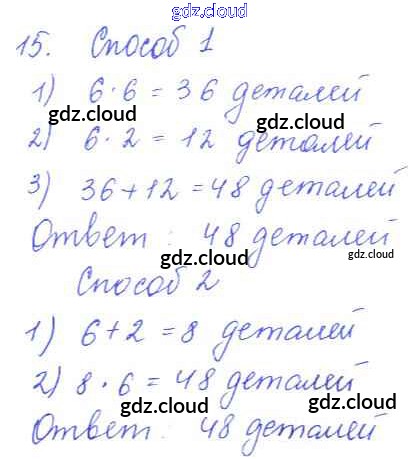 gdz.cloud
15. Способ 1
1) 6·6 = 36 деталей
gdz.cloud gdz.cloud
2) 6·2 = 12 деталей
3) 36+12 = 48 деталей
gdz.cloud gdz.cloud
Ответ: 48 деталей
gdz.cloud gdz.cloud
Способ 2
1) 6+2 = 8 деталей
gdz.cloud
2) 8·6 = 48 деталей
gdz.cloud gdz.cloud
Ответ: 48 деталей
gdz.cloud